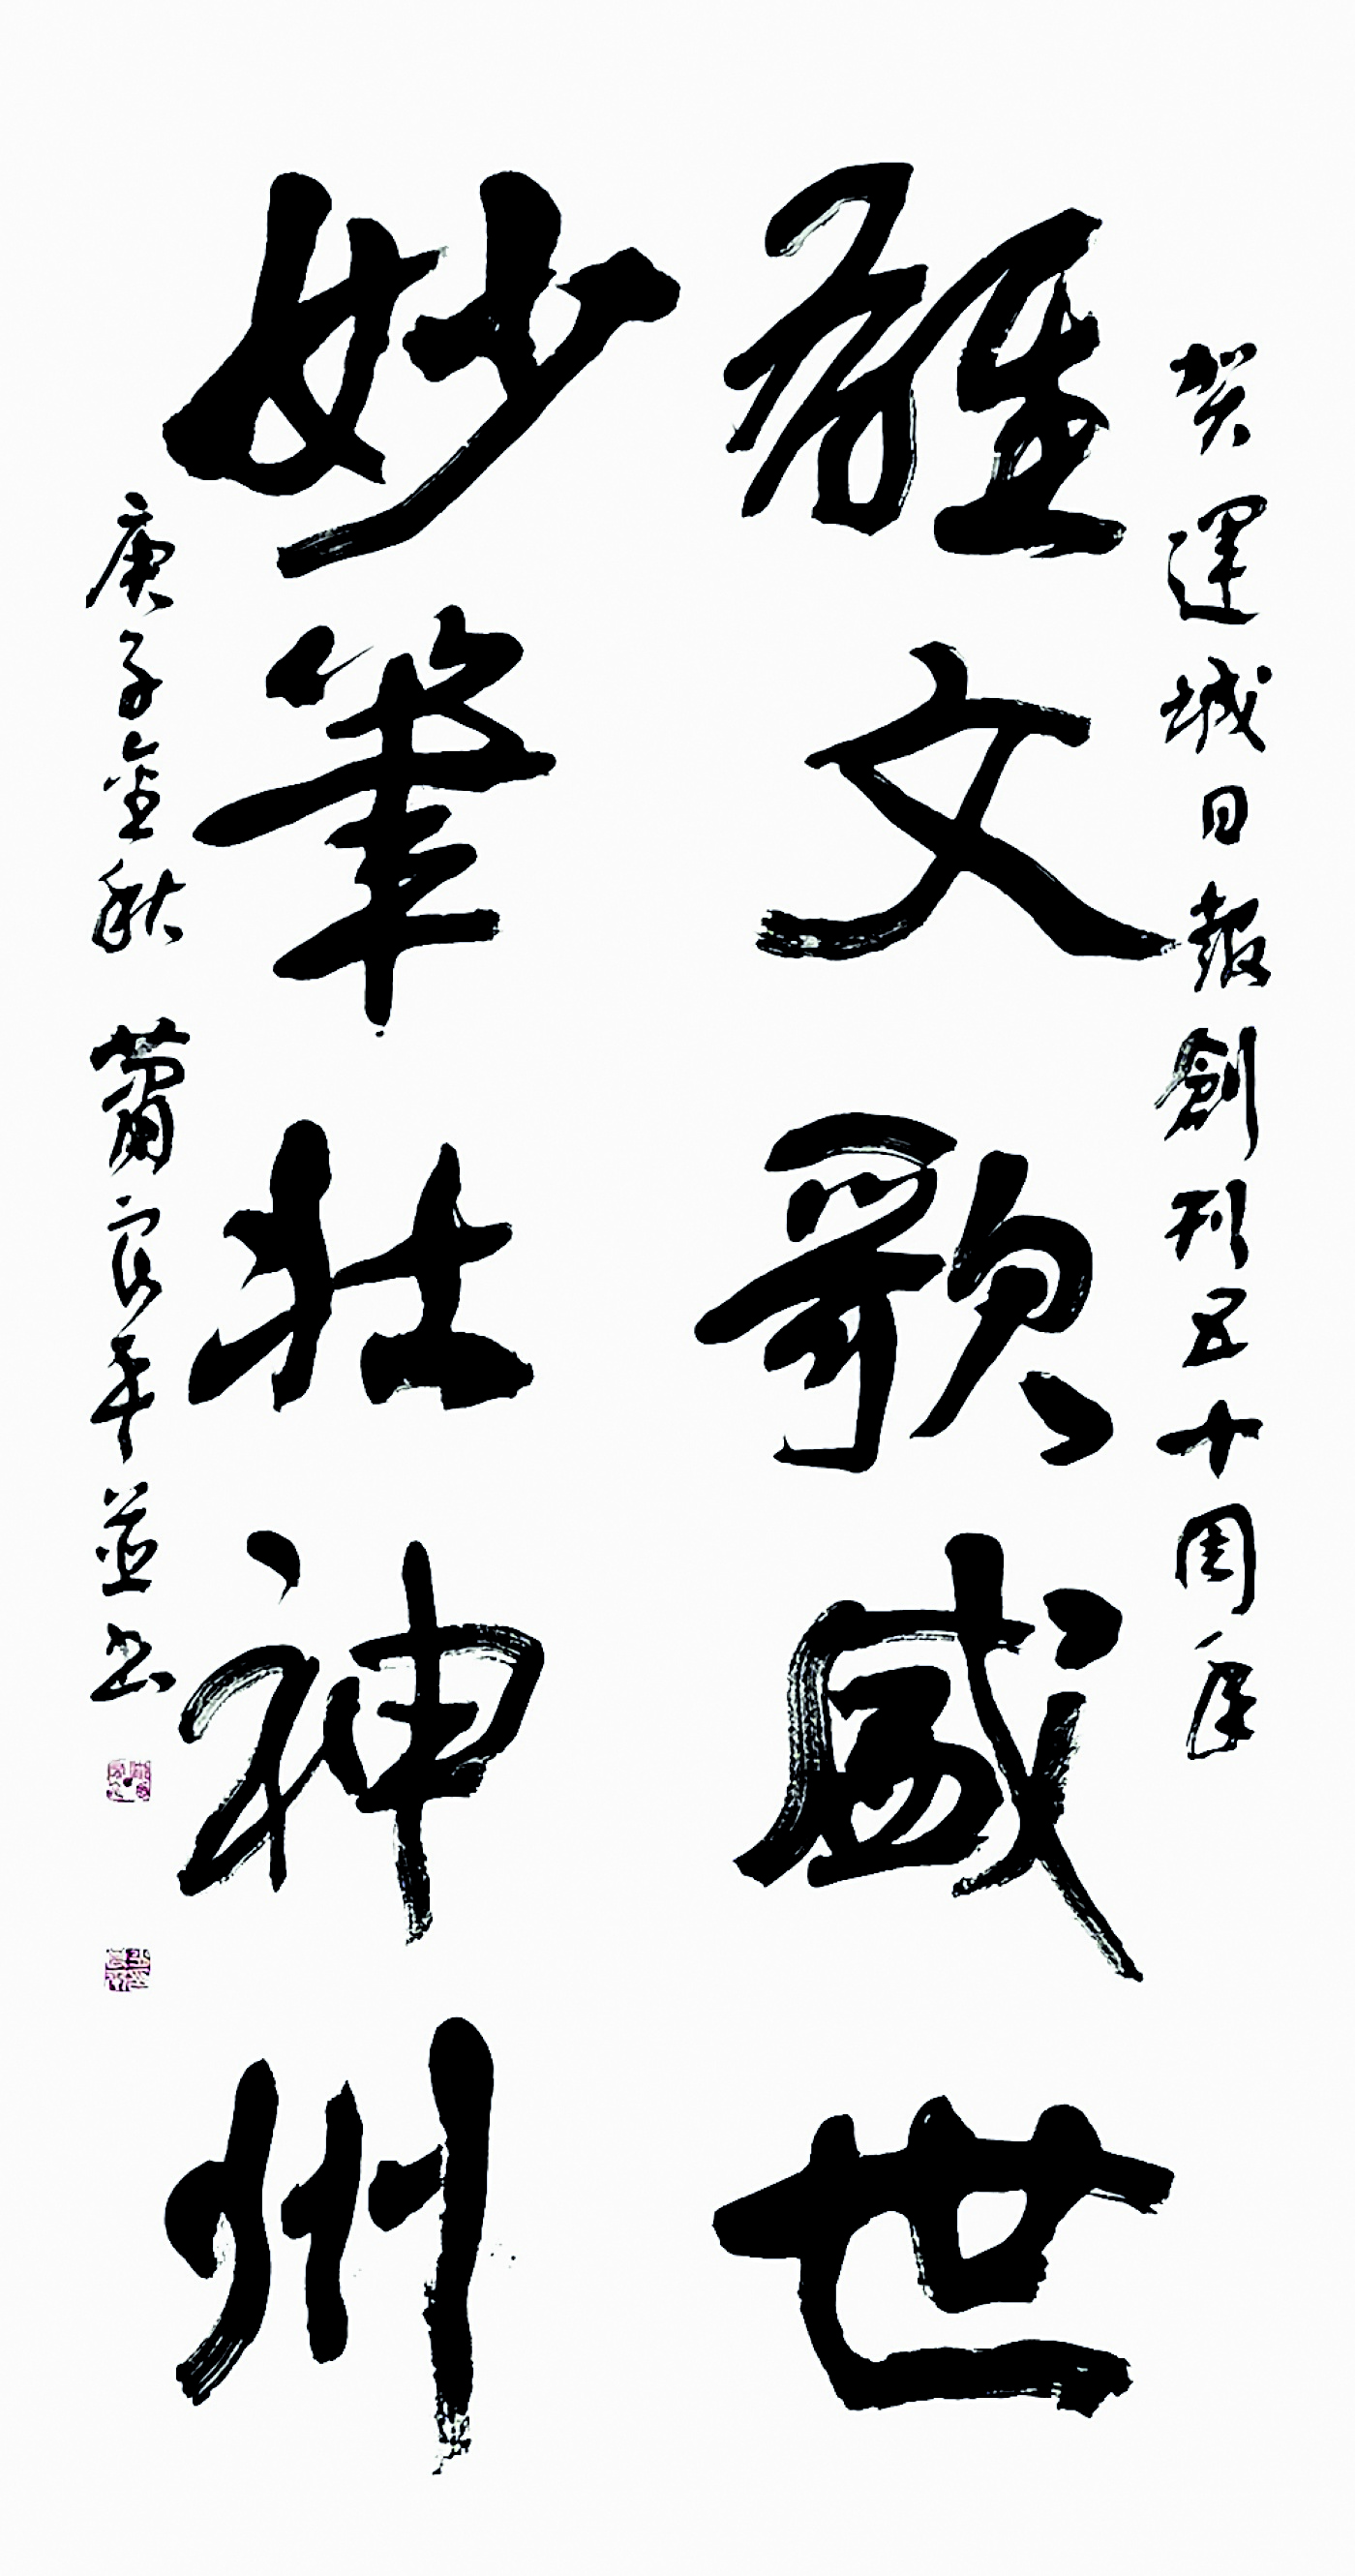 賀運城日報創刊五十周年
雄文歌盛世
妙筆壯神州
庚子金秋 蕭良平並書